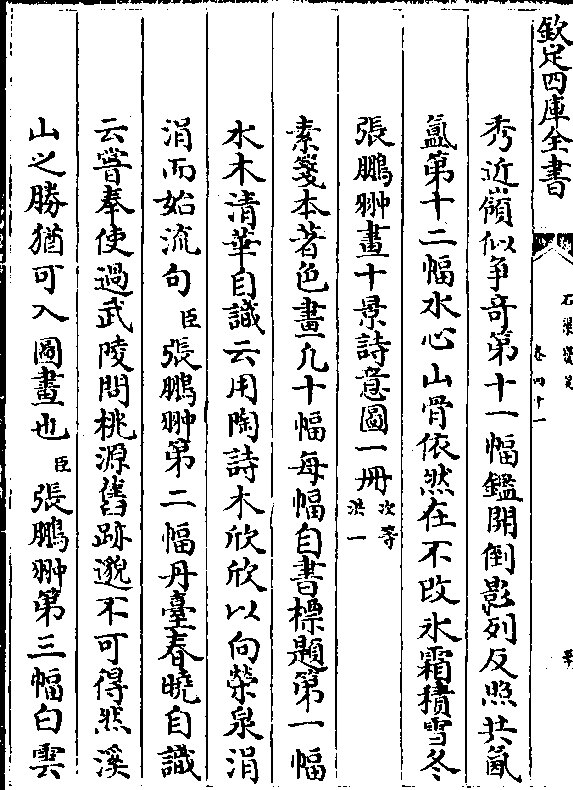 欽定四庫全書
石渠寶笈
卷四十一
秀近嶺似爭奇第十一幅鑑開倒影列反照共氤
氳第十二幅水心山骨依然在不改氷霜積雪冬
張鵬翀畫十景詩意圖一册次等洪一
素箋本著色畫凡十幅每幅自書標題第一幅
水木清華自識云用陶詩木欣欣以向榮泉涓
涓而始流句臣張鵬翀第二幅丹臺春曉自識
云嘗奉使過武陵問桃源舊跡邈不可得然溪
山之勝猶可入圖畫也臣張鵬翀第三幅白雲